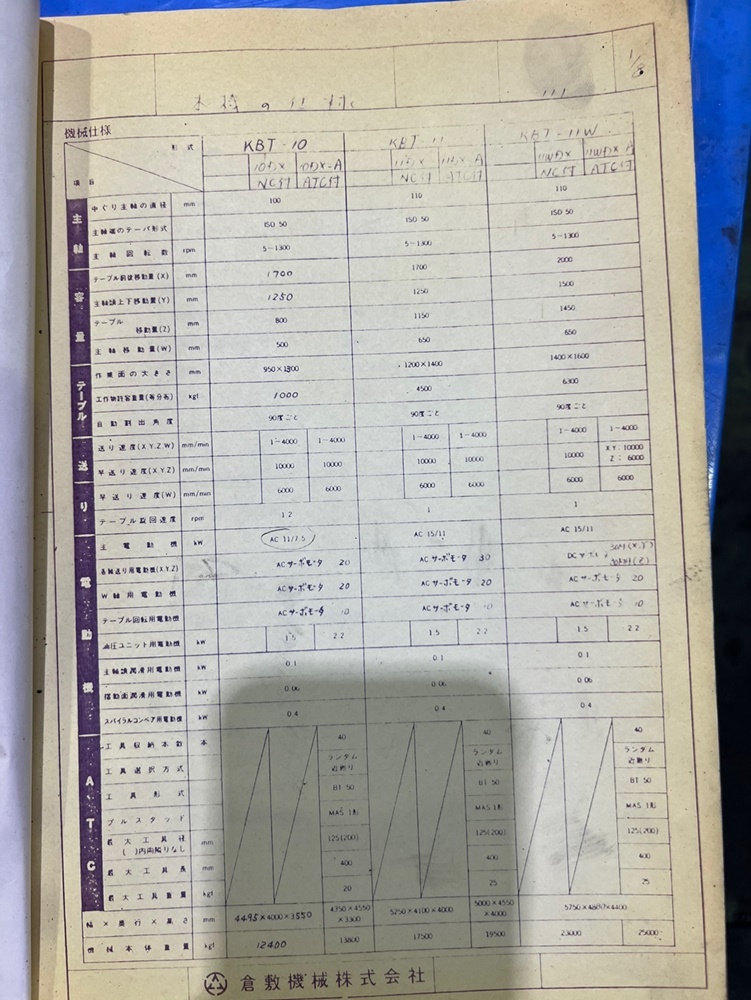 1/8
本機の仕様
機械仕様
形式 KBT-10 KBT-11 KBT-11W
項目 10DX NC付 10DX-A ATC付 11DX NC付 11DX-A ATC付 11WDX NC付 11WDX-A ATC付
主軸
中ぐり主軸の直径 mm 100 110 110
主軸端のテーパ形式 ISO 50 ISO 50 ISO 50
主軸回転数 rpm 5-1300 5-1300 5-1300
容量
テーブル前後移動量(X) mm 1700 1700 2000
主軸頭上下移動量(Y) mm 1250 1250 1500
テーブル移動量(Z) mm 800 1150 1450
主軸移動量(W) mm 500 650 650
テーブル
作業面の大きさ mm 950×1300 1200×1400 1400×1600
工作物許容重量(等分布) kgf 1000 4500 6300
自動割出角度 90度ごと 90度ごと 90度ごと
送り
送り速度(X.Y.Z.W) mm/min 1-4000 1-4000 1-4000 1-4000 1-4000 1-4000
早送り速度(X.Y.Z) mm/min 10000 10000 10000 10000 10000 X.Y. 10000 Z: 6000
早送り速度(W) mm/min 6000 6000 6000 6000 6000 6000
テーブル旋回速度 rpm 1.2 1 1
電動機
主電動機 kW AC 11/7.5 AC 15/11 AC 15/11
各軸送り用電動機(X.Y.Z) ACサーボモータ 20 ACサーボモータ 30 DC
W軸用電動機 ACサーボモータ 20 ACサーボモータ 20 ACサーボモータ 20
テーブル回転用電動機 ACサーボモータ 10 ACサーボモータ 10 ACサーボモータ 10
油圧ユニット用電動機 kW 1.5 2.2 1.5 2.2 1.5 2.2
主軸頭潤滑用電動機 kW 0.1 0.1 0.1
摺動面潤滑用電動機 kW 0.06 0.06 0.06
スパイラルコンベア用電動機 kW 0.4 0.4 0.4
ATC
工具収納本数 本 40 40 40
工具選択方式 ランダム近廻り ランダム近廻り ランダム近廻り
工具形式 BT 50 BT 50 BT 50
プルスタッド MAS 1形 MAS 1形 MAS 1形
最大工具径 ( )内両隣りなし mm 125(200) 125(200) 125(200)
最大工具長 mm 400 400 400
最大工具重量 kgf 20 25 25
幅×奥行×高さ mm 4495×4000×3550 4350×4550×3300 5250×4100×4000 5000×4550×4000 5750×4680×4400
機械本体重量 kgf 12400 13800 17500 19500 23000 25000
倉敷機械株式会社